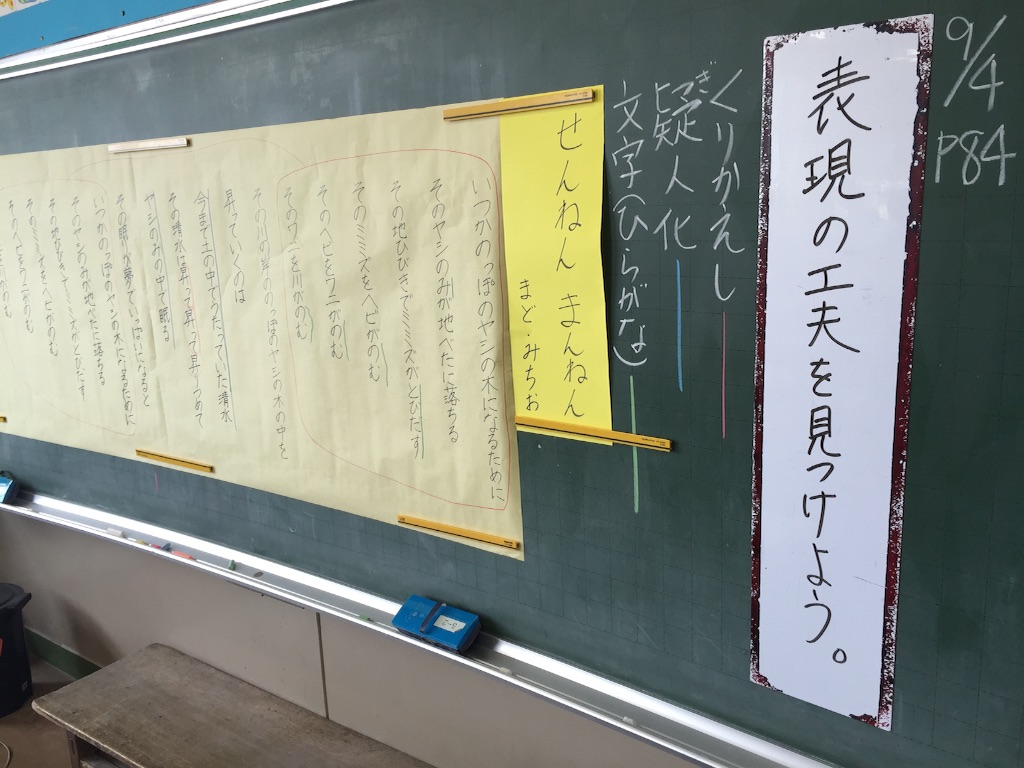 9/4
P84
表現の工夫を見つけよう。
くりかえし
擬人化
ぎ
文字(ひらがな)
せんねん まんねん
まど・みちお
いつかのっぽのヤシの木になるために
そのヤシのみが地べたに落ちる
その地ひびきでミミズがとびだす
そのミミズをヘビがのむ
そのヘビをワニがのむ
そのワニを川がのむ
その川の岸ののっぽのヤシの木の中を
昇っていくのは
今まで土の中でうたっていた清水
その清水は昇って昇って昇りつめて
ヤシのみの中で眠る
その眠りが夢でいっぱいになると
いつかのっぽのヤシの木になるために
そのヤシのみが地べたに落ちる
その地ひびきでミミズがとびだす
そのミミズをヘビがのむ
そのヘビをワニがのむ